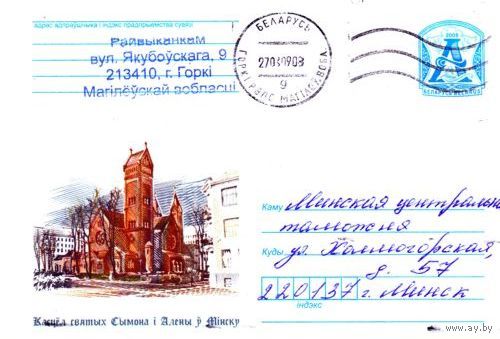 адрас адпраўшчыка і індэкс прадпрыемства сувязі
Райвыканкам
вул. Якубоўскага, 9
213410, г. Горкі
Магілёўскай вобласці
БЕЛАРУСЬ
270309 08
9
2009
А
БЕЛАРУСЬ
Каму Минская центральная
таможня
Куды ул. Холмогорская,
д. 57
220137 г. Минск
індэкс
Касцёл святых Сымона і Алены ў Мінску
www.ay.by